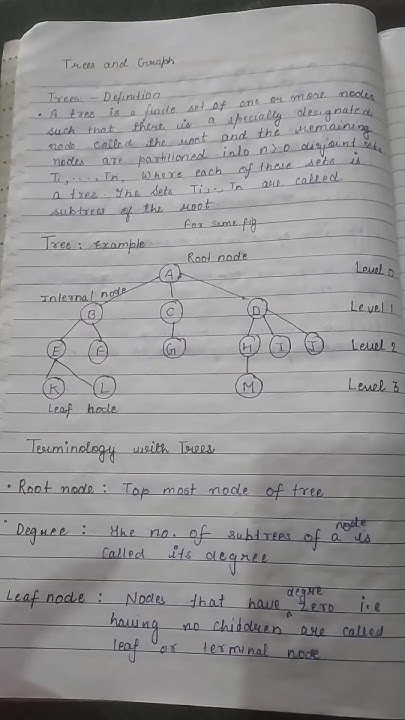 Trees and Graph
Trees :- Definition
• A tree is a finite set of one or more nodes
such that there is a specially designated
node called the root and the remaining
nodes are partitioned into n>0 disjoint sets
T1,...., Tn, where each of these sets is
a tree. The sets T1... Tn are called
subtrees of the root.
For same fig
Tree : Example
Root node
A
Level 0
Internal node
B C D
Level 1
E F G H I J
Level 2
K L M
Level 3
Leaf node
Terminology with Trees
• Root node : Top most node of tree
• Degree : The no. of subtrees of a node is
called its degree
Leaf node : Nodes that have degre zero i.e
having no chiddren are called
leaf or terminal node